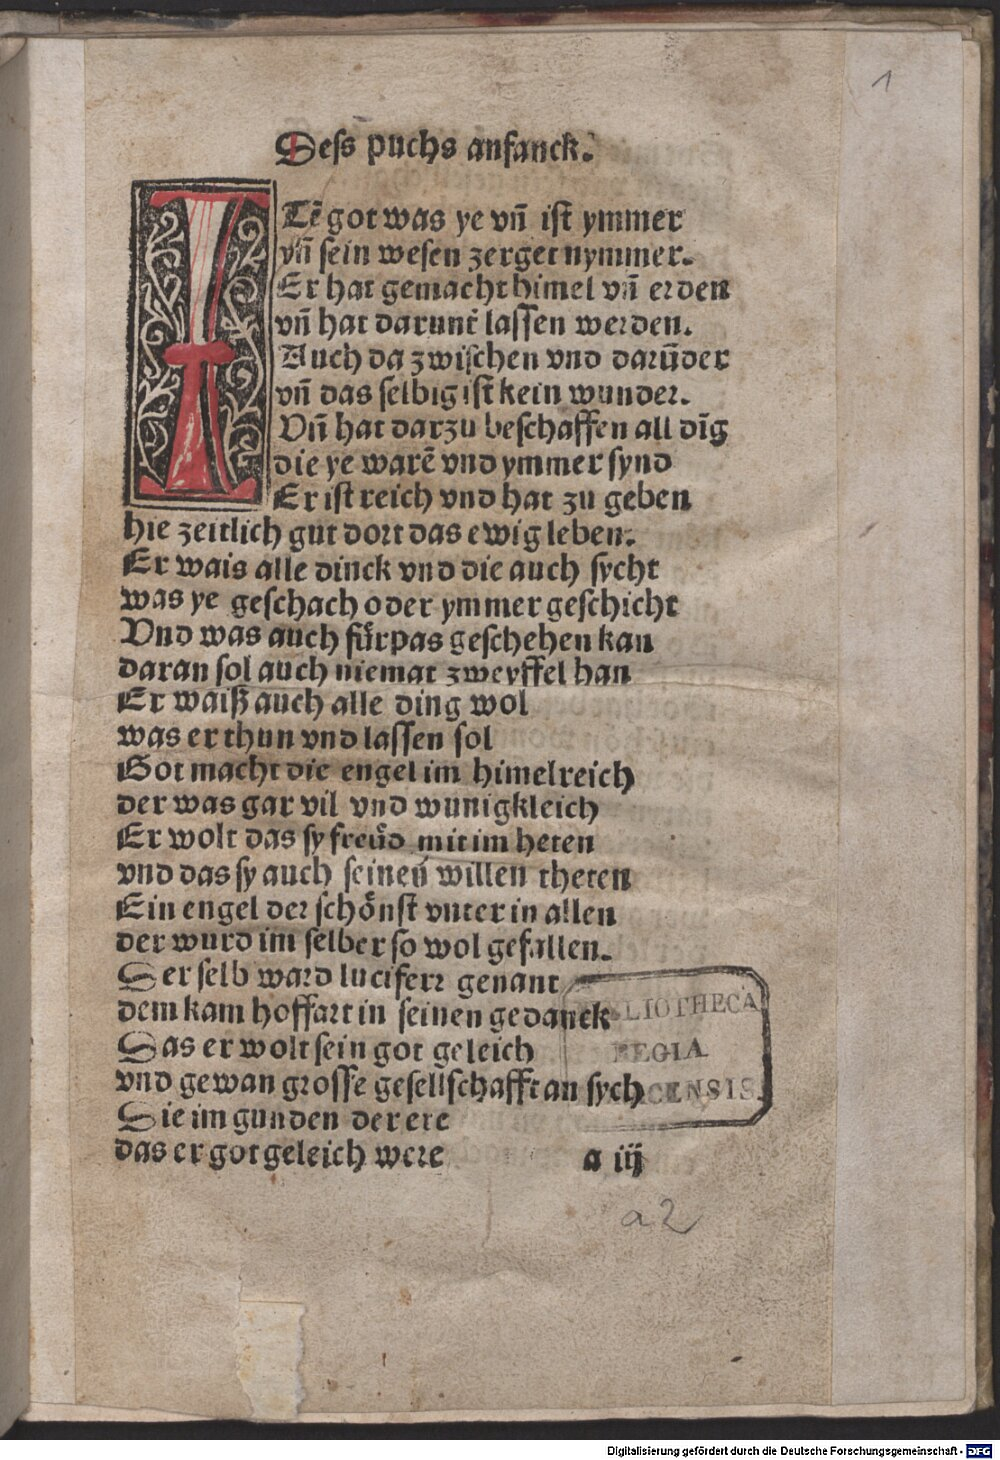 1
Dess puchs anfanck.
ITē got was ye vn̄ ist ymmer
vn̄ sein wesen zerget nymmer.
Er hat gemacht himel vn̄ erden
vn̄ hat darunt̄ lassen werden.
Auch da zwischen vnd darūder
vn̄ das selbig ist kein wunder.
Vn̄ hat darzu beschaffen all dīg
die ye warē vnd ymmer synd
Er ist reich vnd hat zu geben
hie zeitlich gut dort das ewig leben.
Er wais alle dinck vnd die auch sycht
was ye geschach oder ymmer geschicht
Vnd was auch fürpas geschehen kan
daran sol auch niemat zweyffel han
Er waiß auch alle ding wol
was er thun vnd lassen sol
Got macht die engel im himelreich
der was gar vil vnd wunigkleich
Er wolt das sy freüd mit im heten
vnd das sy auch seinen willen theten
Ein engel der schönst vnter in allen
der wurd im selber so wol gefallen.
Der selb ward luciferr genant
dem kam hoffart in seinen gedanck
Das er wolt sein got geleich
vnd gewan grosse gesellschafft an sych
Die im gunden der ere
das er got geleich were
a iij
BIBLIOTHECA
REGIA
MONACENSIS.
a2
Digitalisierung gefördert durch die Deutsche Forschungsgemeinschaft - DFG